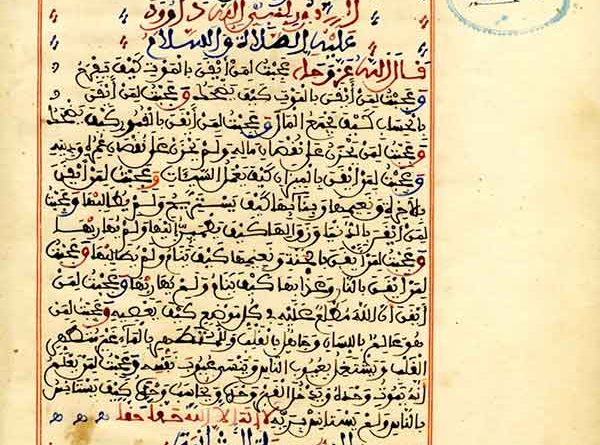 لنبي الله داوود
عليه الصلاة والسلام
قال الله عز وجل عجبت لمن أيقن بالموت كيف يفرح
وعجبت لمن أيقن بالموت كيف يضحك وعجبت لمن أيقن
بالحساب كيف يجمع المال وعجبت لمن أيقن بالقبور كيف يضحك
وعجبت لمن يحزن على نقصان ماله ولم يحزن على نقصان عمره ودينه
وعجبت لمن أيقن بالميزان كيف يعمل السيئات وعجبت لمن أيقن
بالآخرة ونعيمها وبقائها كيف يستريح ولم يطالبها وعجبت
لمن أيقن بالدنيا وزوالها كيف يطمئن إليها ولم يهاربها
وعجبت لمن أيقن بالجنة ونعيمها كيف ينام ولم يطالبها وعجبت
لمن أيقن بالنار وعذابها كيف ينام ولم يهاربها وعجبت لمن
أيقن أن الله مطلع عليه في كل موضع كيف يعصيه وعجبت لمن
هو عالم باللسان وجاهل بالقلب بالماء غير
القلب ويشتغل بعيوب الناس وينسى عيوب نفسه وعجبت لمن يعلم
أنه يموت وحده ويدخل القبر وحده ويحاسب وحده كيف يستأنس
بالناس ولم يستأنس بربه لا إله إلا الله حقا حقا